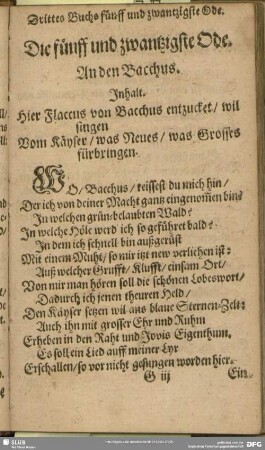 Drittes Buchs fünff und zwantzigste Ode.
Die fünff und zwantzigste Ode.
An den Bacchus.
Inhalt.
Hier Flaccus von Bacchus entzucket / wil
singen
Vom Käyser / was Neues / was Grosses
fürbringen.
WO / Bacchus / reissest du mich hin /
Der ich von deiner Macht gantz eingenom̃en bin?
In welchen grün-belaubten Wald?
In welche Höle werd ich so geführet bald?
In dem ich schnell bin außgerüst
Mit einem Muht / so mir itzt new verlichen ist:
Auß welcher Grufft / Klufft / einsam Ort /
Von mir man hören soll die schönen Lobeswort /
Dadurch ich jenen theuren Held /
Den Käyser setzen wil ans blaue Sternen-Zelt:
Auch ihn mit grosser Ehr und Ruhm
Erheben in den Raht und Jovis Eigenthum.
Es soll ein Lied auff meiner Lyr
Erschallen / so vor nicht gesungen worden hier.
G iij
Ein
SLUB
DFG